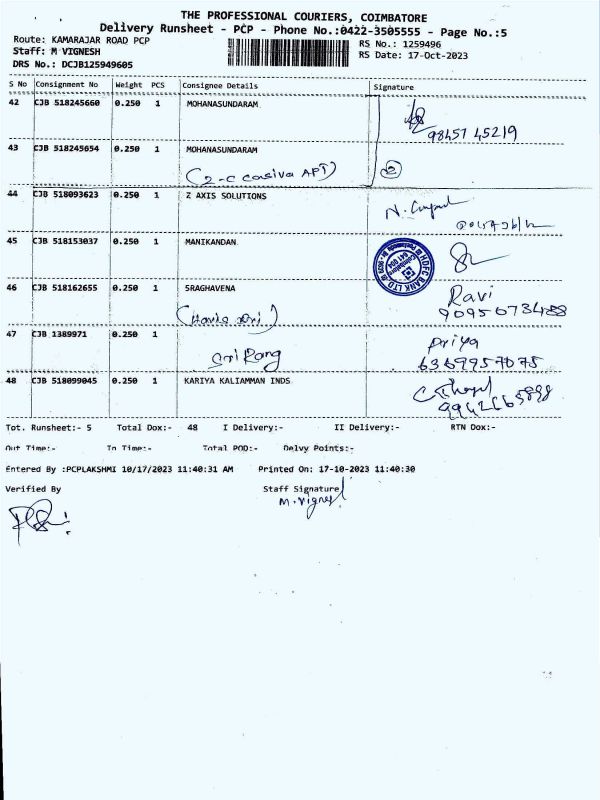 THE PROFESSIONAL COURIERS, COIMBATORE
Delivery Runsheet - PCP - Phone No.:0422-3505555 - Page No.:5
Route: KAMARAJAR ROAD PCP
RS No.: 1259496
Staff: M VIGNESH
RS Date: 17-Oct-2023
DRS No.: DCJB125949605
S No Consignment No Weight PCS Consignee Details Signature
42 CJB 518245660 0.250 1 MOHANASUNDARAM
98457 45219
43 CJB 518245654 0.250 1 MOHANASUNDARAM
(2-C Casiva APT) 2
44 CJB 518093623 0.250 1 Z AXIS SOLUTIONS
45 CJB 518153037 0.250 1 MANIKANDAN
HDFC BANK LTD
46 CJB 518162655 0.250 1 SRAGHAVENA
Ravi
9095073488
47 CJB 1389971 0.250 1
Priya
Sri Rang
6369957075
48 CJB 518099045 0.250 1 KARIYA KALIAMMAN INDS
Tot. Runsheet:- 5 Total Dox:- 48 I Delivery:- II Delivery:- RTN Dox:-
Out Time:- In Time:- Total POD:- Delvy Points:-
Entered By :PCPLAKSHMI 10/17/2023 11:40:31 AM Printed On: 17-10-2023 11:40:30
Verified By Staff Signature
M. Vignesh